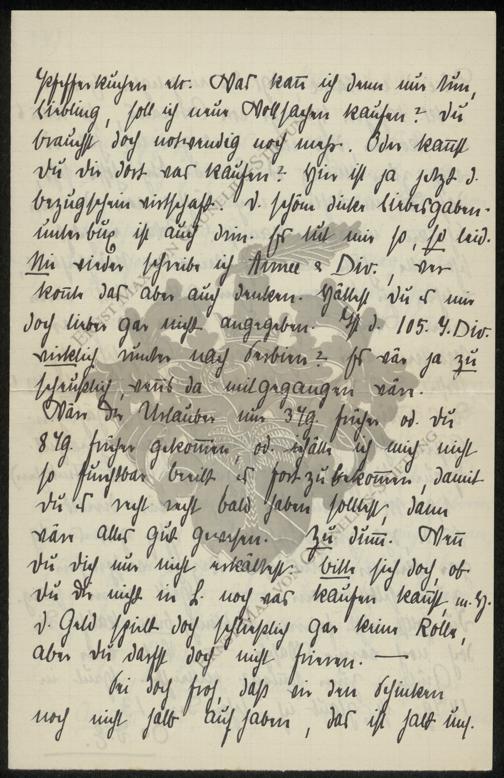 Pfefferkuchen etc. Was kan̄ ich denn nur tun,
Liebling, soll ich neue Wollsachen kaufen? Du
brauchst doch notwendig noch mehr. Oder kan̄st
Du Dir dort was kaufen? Hier ist ja jetzt d.
Bezugscheinwirtschaft. D. schöne dicke Liebesgaben-
unterbux ist auch drin. Es tut mir so, so leid.
Nie wieder schreibe ich Armee & Div., wer
kon̄te das aber auch denken. Hättest Du es mir
doch lieber gar nicht angegeben. Ist d. 105. I. Div.
wirklich runter nach Serbien? Es wär ja zu
scheußlich, wen̄s da mitgegangen wär.
Wär der Urlauber nur 3 Tg. früher od. Du
8 Tg. früher gekom̄en, od. hätte ich mich nicht
so furchtbar beeilt es fortzubekom̄en, damit
Du es recht recht bald haben solltest, dann
wär alles gut gewesen. Zu dum̄. Wen̄
Du Dich nur nicht erkältest. bitte sieh doch, ob
Du Dir nicht in L. noch was kaufen kan̄st, m. H.
d. Geld spielt doch schließlich gar keine Rolle,
aber Du darfst doch nicht frieren. —
Sei doch froh, daß wir den Schinken
noch nicht halb auf haben, das ist halt uns.
Ernst-Martin von Gaudecker-Stiftung